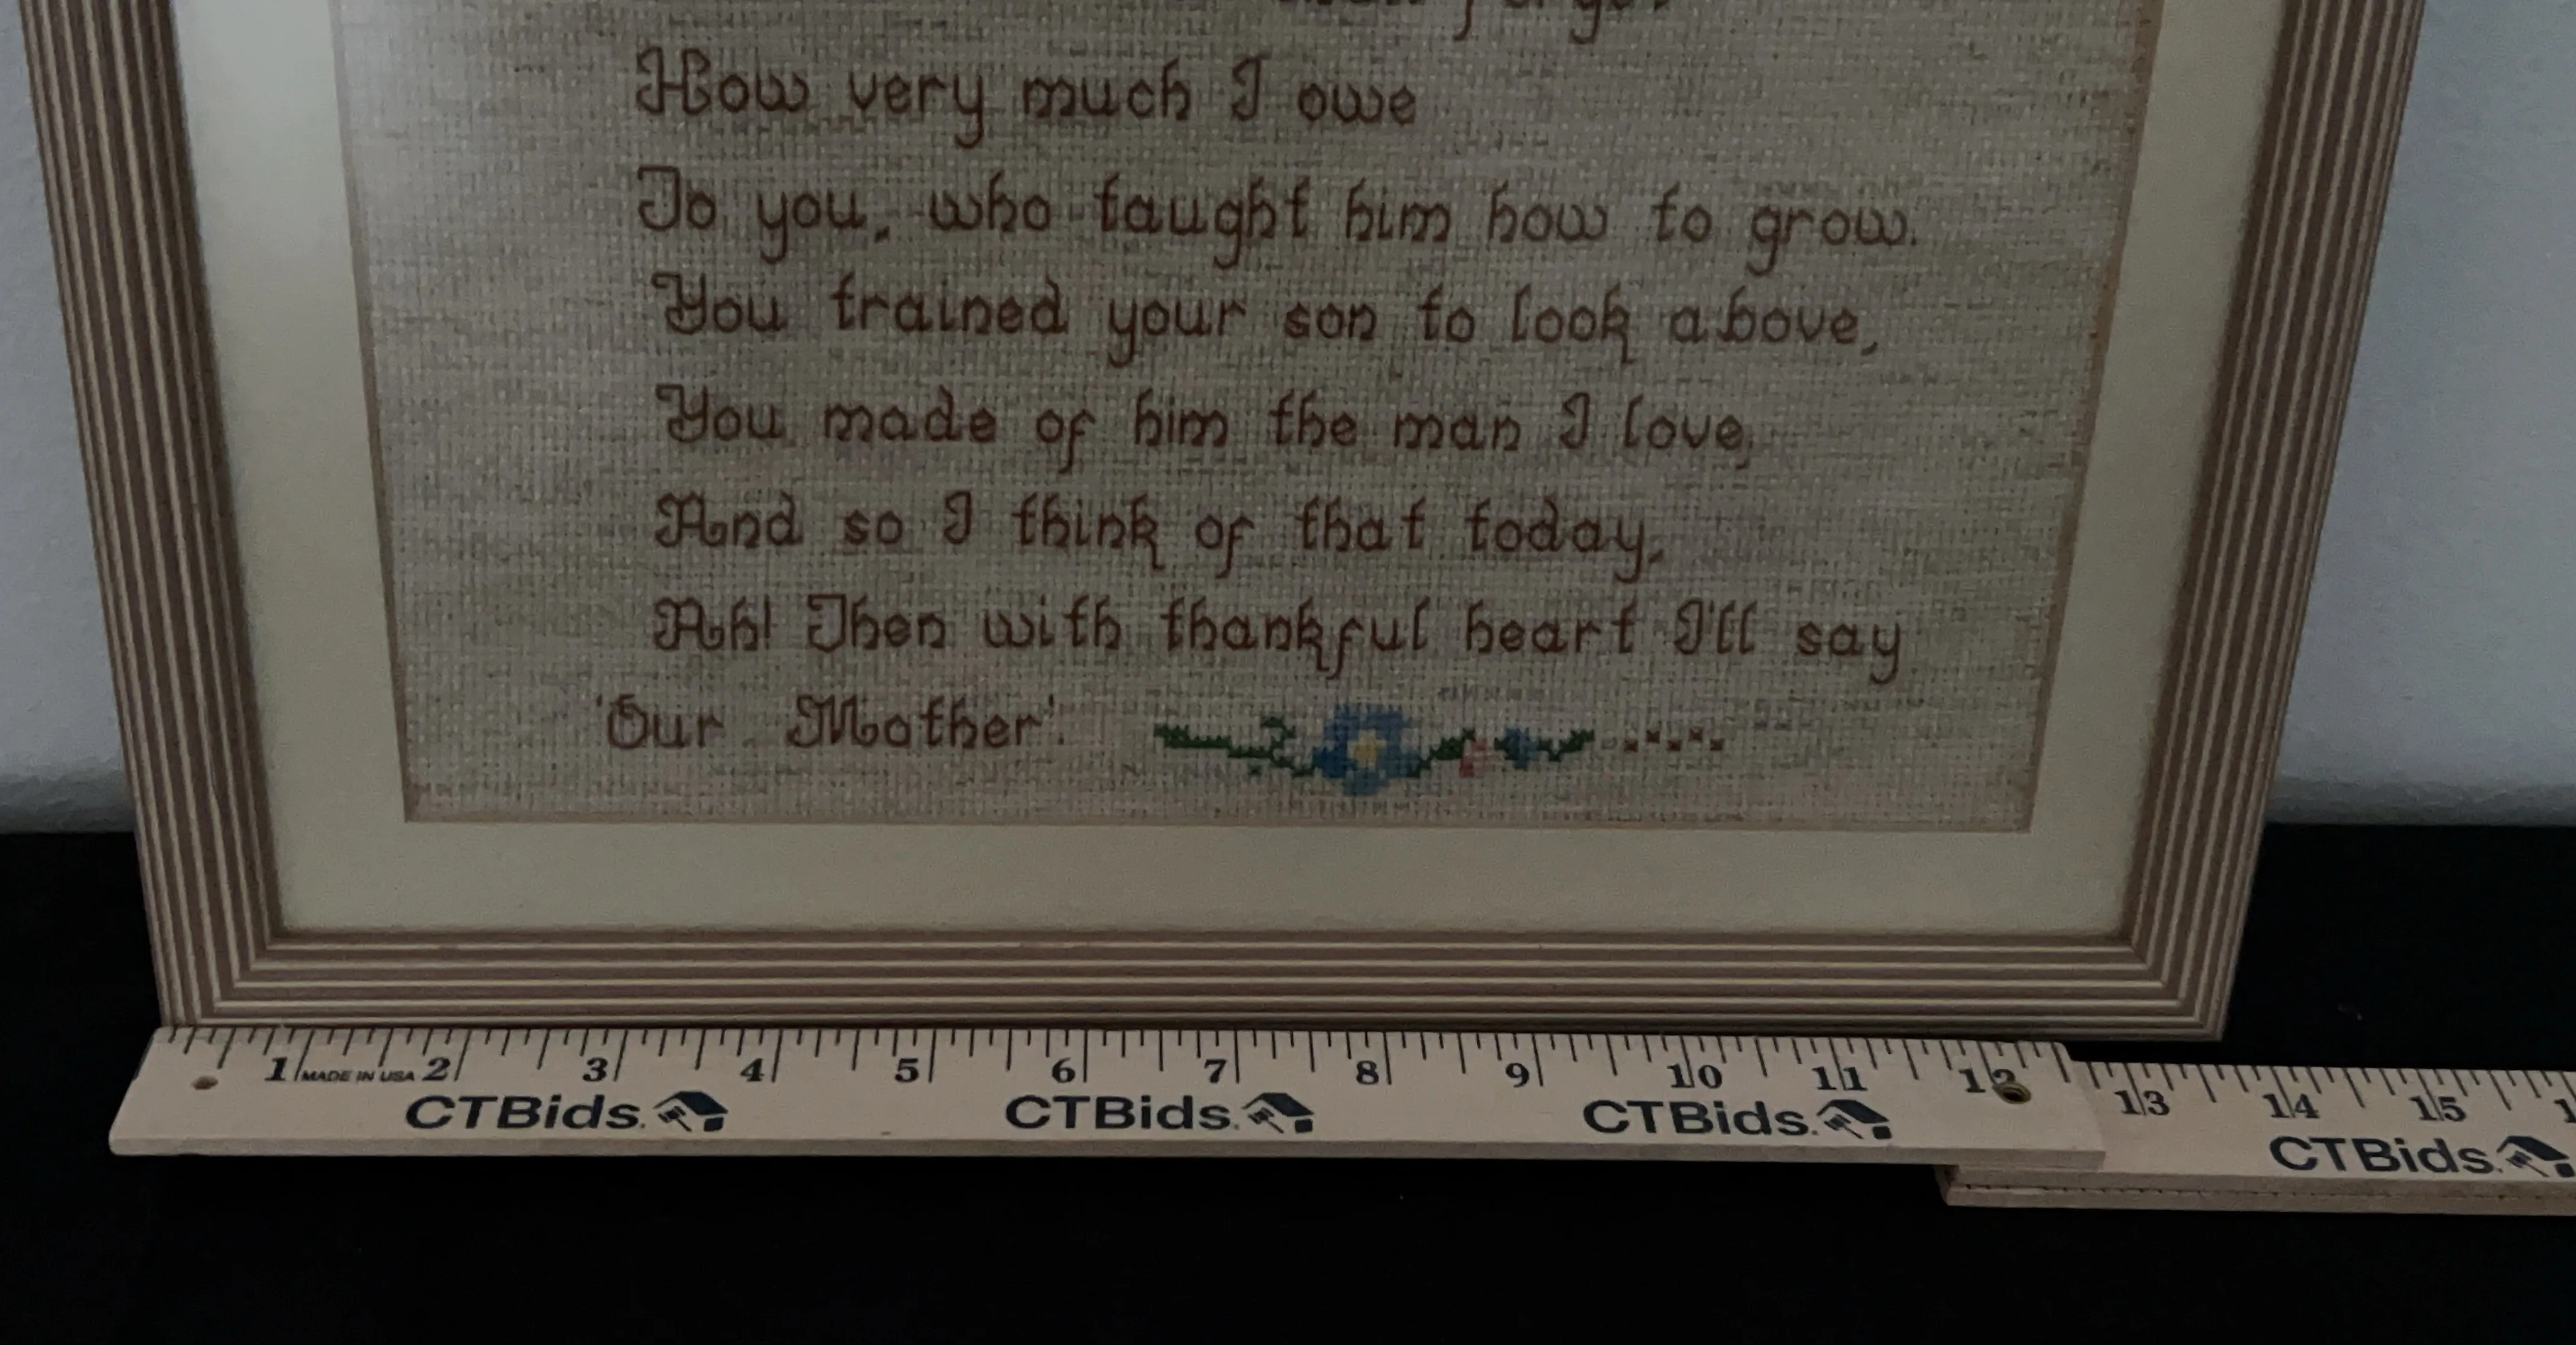 How very much I owe
To you, who taught him how to grow.
You trained your son to look above,
You made of him the man I love,
And so I think of that today,
Ah! Then with thankful heart I'll say
'Our Mother'.
1 MADE IN USA 2 3 4 5 6 7 8 9 10 11 12 13 14 15
CTBids. CTBids. CTBids. CTBids.